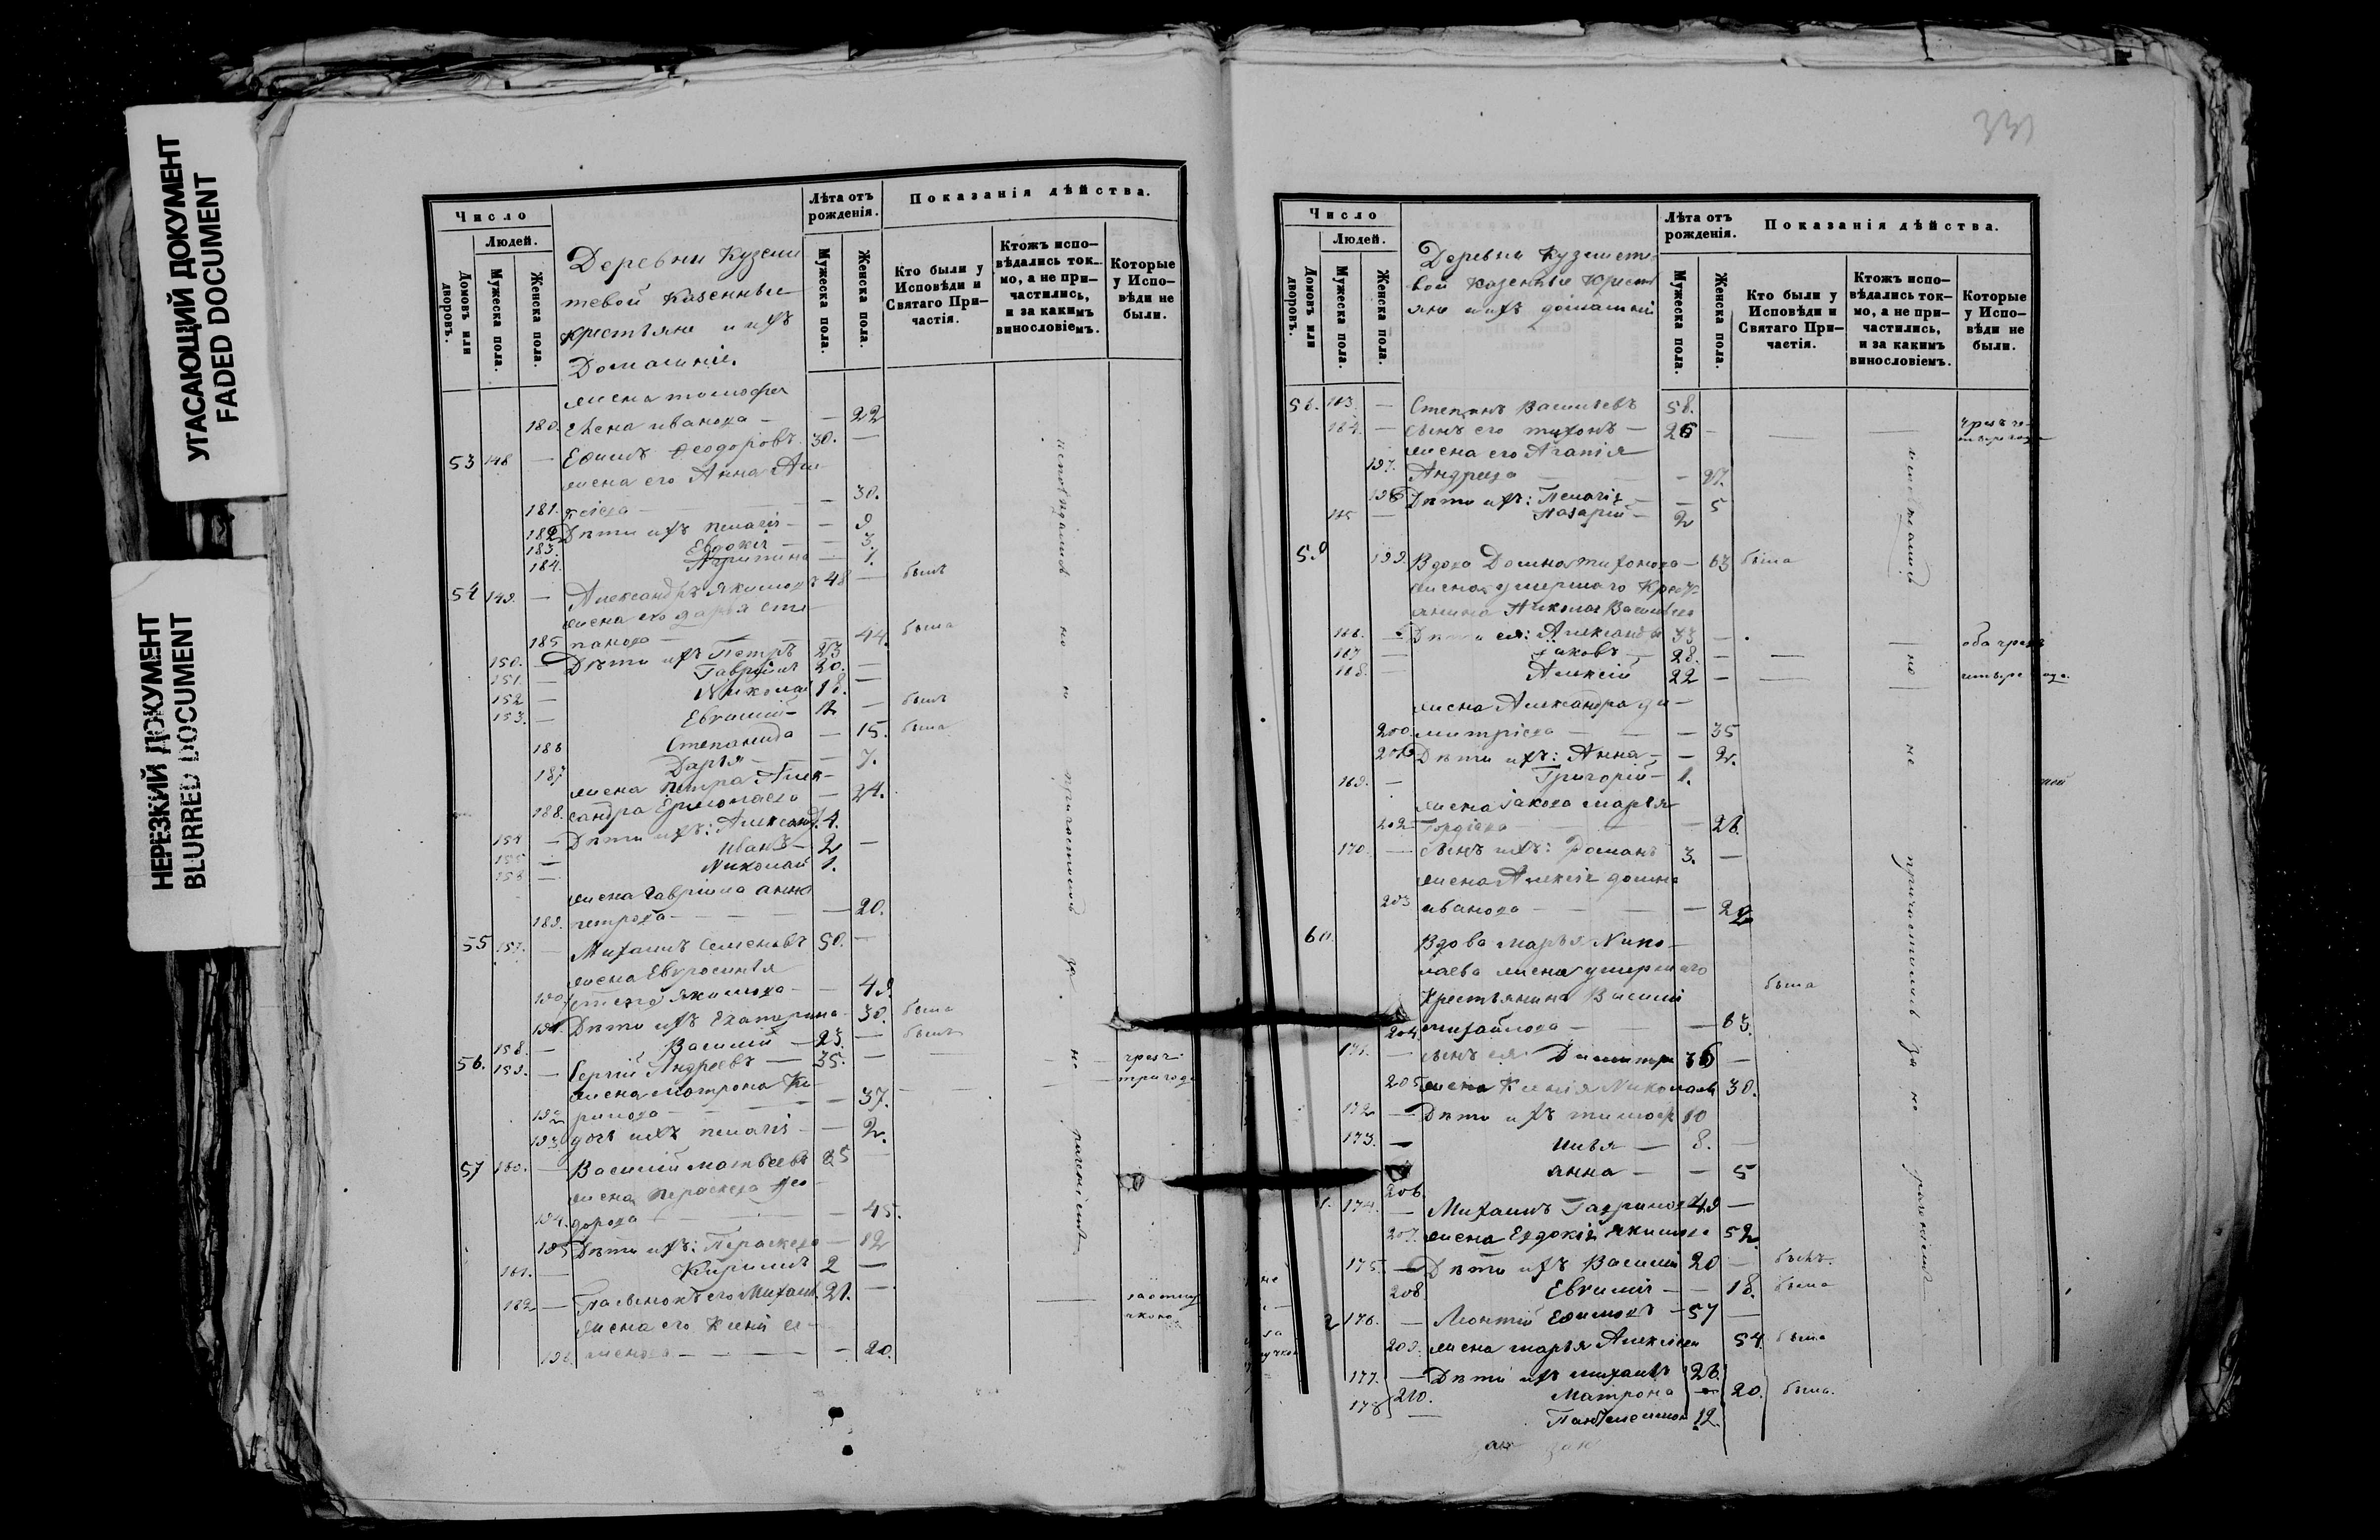 УГАСАЮЩИЙ ДОКУМЕНТ
FADED DOCUMENT
НЕРЕЗКИЙ ДОКУМЕНТ
BLURRED DOCUMENT
Число
Людей.
Домовъ или дворовъ.
Мужеска пола.
Женска пола.
Деревни Куземи
тевой Казенные
крестьяне и ихъ
Домашніе.
Лѣта отъ рожденія.
Мужеска пола.
Женска пола.
Показанія дѣйства.
Кто были у Исповѣди и Святаго При-частія.
Ктожъ испо-вѣдались ток-мо, а не при-частились, и за какимъ винословіемъ.
Которые у Испо-вѣди не были.
жена
180. Елена Иванова — — 22
53 148 — Ефимъ Ѳеодоровъ 30. —
жена его Анна Але
181. — 30.
182 Дѣти ихъ Пелагія — — 9
183. Евдокія — — 3.
184. Агрипина — 1.
54 149. — Александръ Якимовъ 48 — былъ
жена его Дарья Сте
185 панова — 44. была
150. — Дѣти ихъ Петръ 23 —
151. — Гавріилъ 20. —
152 — Николай 18. —
153. — Евгеній — 12 — былъ
186 Степанида — 15. была
187 Дарья — — 7.
жена Петра Алек-
188. сандра Ермолаева — 24.
154 — Дѣти ихъ: Александ. 4.
155 — Иванъ — 2 —
156 — Николай 1.
жена Гавріила Анна
189. Петрова — — 20.
55 157. — Михаилъ Семеновъ 50. —
жена Евросинья
190 Якимова — — 49.
191. Дѣти ихъ Екатерина — 30. была
158. — Василій — 23. — былъ
56. 159. — Сергій Андреевъ — 35. — чрезъ
жена Матрона Ки — три года
192 рилова — — 37.
193 дочь ихъ Пелагія — — 2.
57 160. — Василій Матвеевъ 35 —
жена Параскева Ѳео
194. дорова — — 45.
195 Дѣти ихъ: Параскева — 12
161. — Кирилъ 2 —
162 — Пасынокъ его Михаил. 21. —
жена его Ксенія Се
196. менова — — 20.
исповѣдались но не причастились за не раченіемъ
331
Число
Людей.
Домовъ или дворовъ.
Мужеска пола.
Женска пола.
Деревни Кузмите
вой Казенные Крест
яне и ихъ домашніи
Лѣта отъ рожденія.
Мужеска пола.
Женска пола.
Показанія дѣйства.
Кто были у Исповѣди и Святаго При-частія.
Ктожъ испо-вѣдались ток-мо, а не при-частились, и за какимъ винословіемъ.
Которые у Испо-вѣди не были.
58. 163. — Степанъ Васильевъ 58.
164. — сынъ его Тихонъ — 26 —
жена его Агапія
197. Андреева — — 27.
198 Дѣти ихъ: Пелагія — — 5
165 — Назарій — 2
59 199. Вдова Домна Тихонова — 63 была
жена умершаго Кресть
янина Николая Васильева
166. — Дѣти ея: Александръ 33 —
167 — Іаковъ — 28. —
168. — Алексій 22 —
жена Александра Ди —
200. митріева — — 35
201 Дѣти ихъ: Анна — — 2.
169. — Григорій — 1.
жена Іакова Марья
202 Гордіева — — 28.
170. — сынъ ихъ: Романъ 3. —
жена Алексія Домна
203 Иванова — — 22
60. Вдова Марья Нико —
лаева жена умершаго
Крестьянина Василій
204 Михайлова — — 63. была
171. — сынъ ея Димитри 36 —
205 жена Ксенія Николаев 30.
172 — Дѣти ихъ Тимоѳ 10
173. — Илья — 8. —
206. Анна — — 5
1. 174. — Михаилъ Гаврилов 49 —
207. жена Евдокія Якимов 52
175 — Дѣти ихъ Василій 20 — былъ.
208. Евгенія — — 18. была
2 176. — Леонтій Ефимовъ — 57 —
209. жена Марья Алексіева 54 была
177. — Дѣти ихъ Михаилъ 26.
210. Матрона — 20. была.
178 — Пантелеимон 12.
исповѣдались но не причастились за не раченіемъ